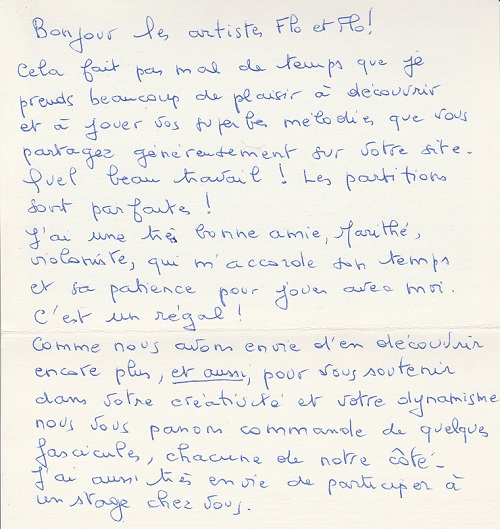 Bonjour les artistes Flo et Flo!
Cela fait pas mal de temps que je
prends beaucoup de plaisir à découvrir
et à jouer vos superbes mélodies que vous
partagez généreusement sur votre site.
Quel beau travail ! Les partitions
sont parfaites !
J'ai une très bonne amie, Marithé,
violoniste, qui m'accorde son temps
et sa patience pour jouer avec moi.
C'est un régal !
Comme nous avons envie d'en découvrir
encore plus, et aussi, pour vous soutenir
dans votre créativité et votre dynamisme
nous vous passons commande de quelques
fascicules, chacune de notre côté.
J'ai aussi très envie de participer à
un stage chez vous.